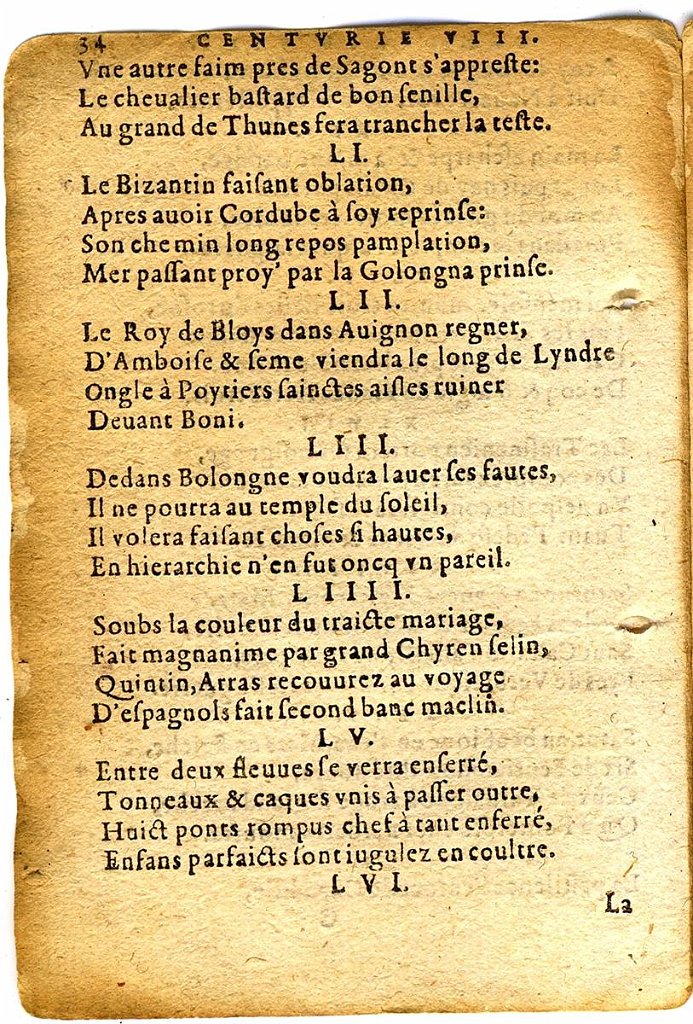 34 CENTVRIE VIII.
Vne autre faim pres de Sagont s'appreſte:
Le cheualier baſtard de bon ſenille,
Au grand de Thunes ſera trancher la teſte.
LI.
Le Bizantin faiſant oblation,
Apres auoir Cordube à ſoy reprinſe:
Son chemin long repos pamplation,
Mer paſſant proy' par la Golongna prinſe.
LII.
Le Roy de Bloys dans Auignon regner,
D'Amboiſe & ſeme viendra le long de Lyndre
Ongle à Poytiers ſainctes aiſles ruiner
Deuant Boni.
LIII.
Dedans Bolongne voudra lauer ſes fautes,
Il ne pourra au temple du ſoleil,
Il volera faiſant choſes ſi hautes,
En hierarchie n'en fut oncq vn pareil.
LIIII.
Soubs la couleur du traicte mariage,
Fait magnanime par grand Chyren ſelin,
Quintin, Arras recouurez au voyage
D'eſpagnols fait ſecond banc maclin.
LV.
Entre deux fleuues ſe verra enſerré,
Tonneaux & caques vnis à paſſer outre,
Huict ponts rompus chef à tant enferré,
Enfans parfaicts ſont iugulez en coultre.
LVI.
La